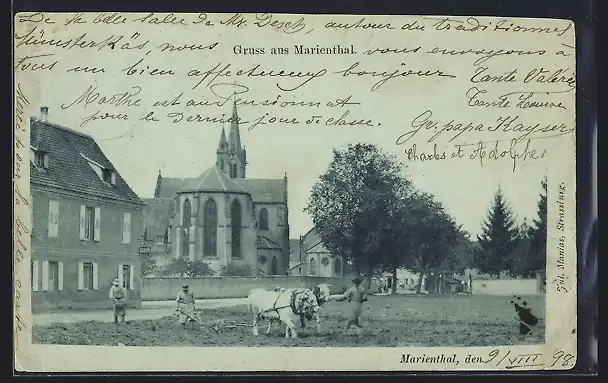 De la belle salle de Mr. Desch, autour du traditionnel
Münsterkäs, nous vous envoyons à
Gruss aus Marienthal.
tous un bien affectueux bonjour Tante Valérie
Marthe est au Pensionnat Tante Louise
pour le dernier jour de classe. Gr. papa Kayser
Charles et Adolphe.
Merci pour la belle carte
Jul. Manias, Strassburg.
Marienthal, den 9/VIII 98.